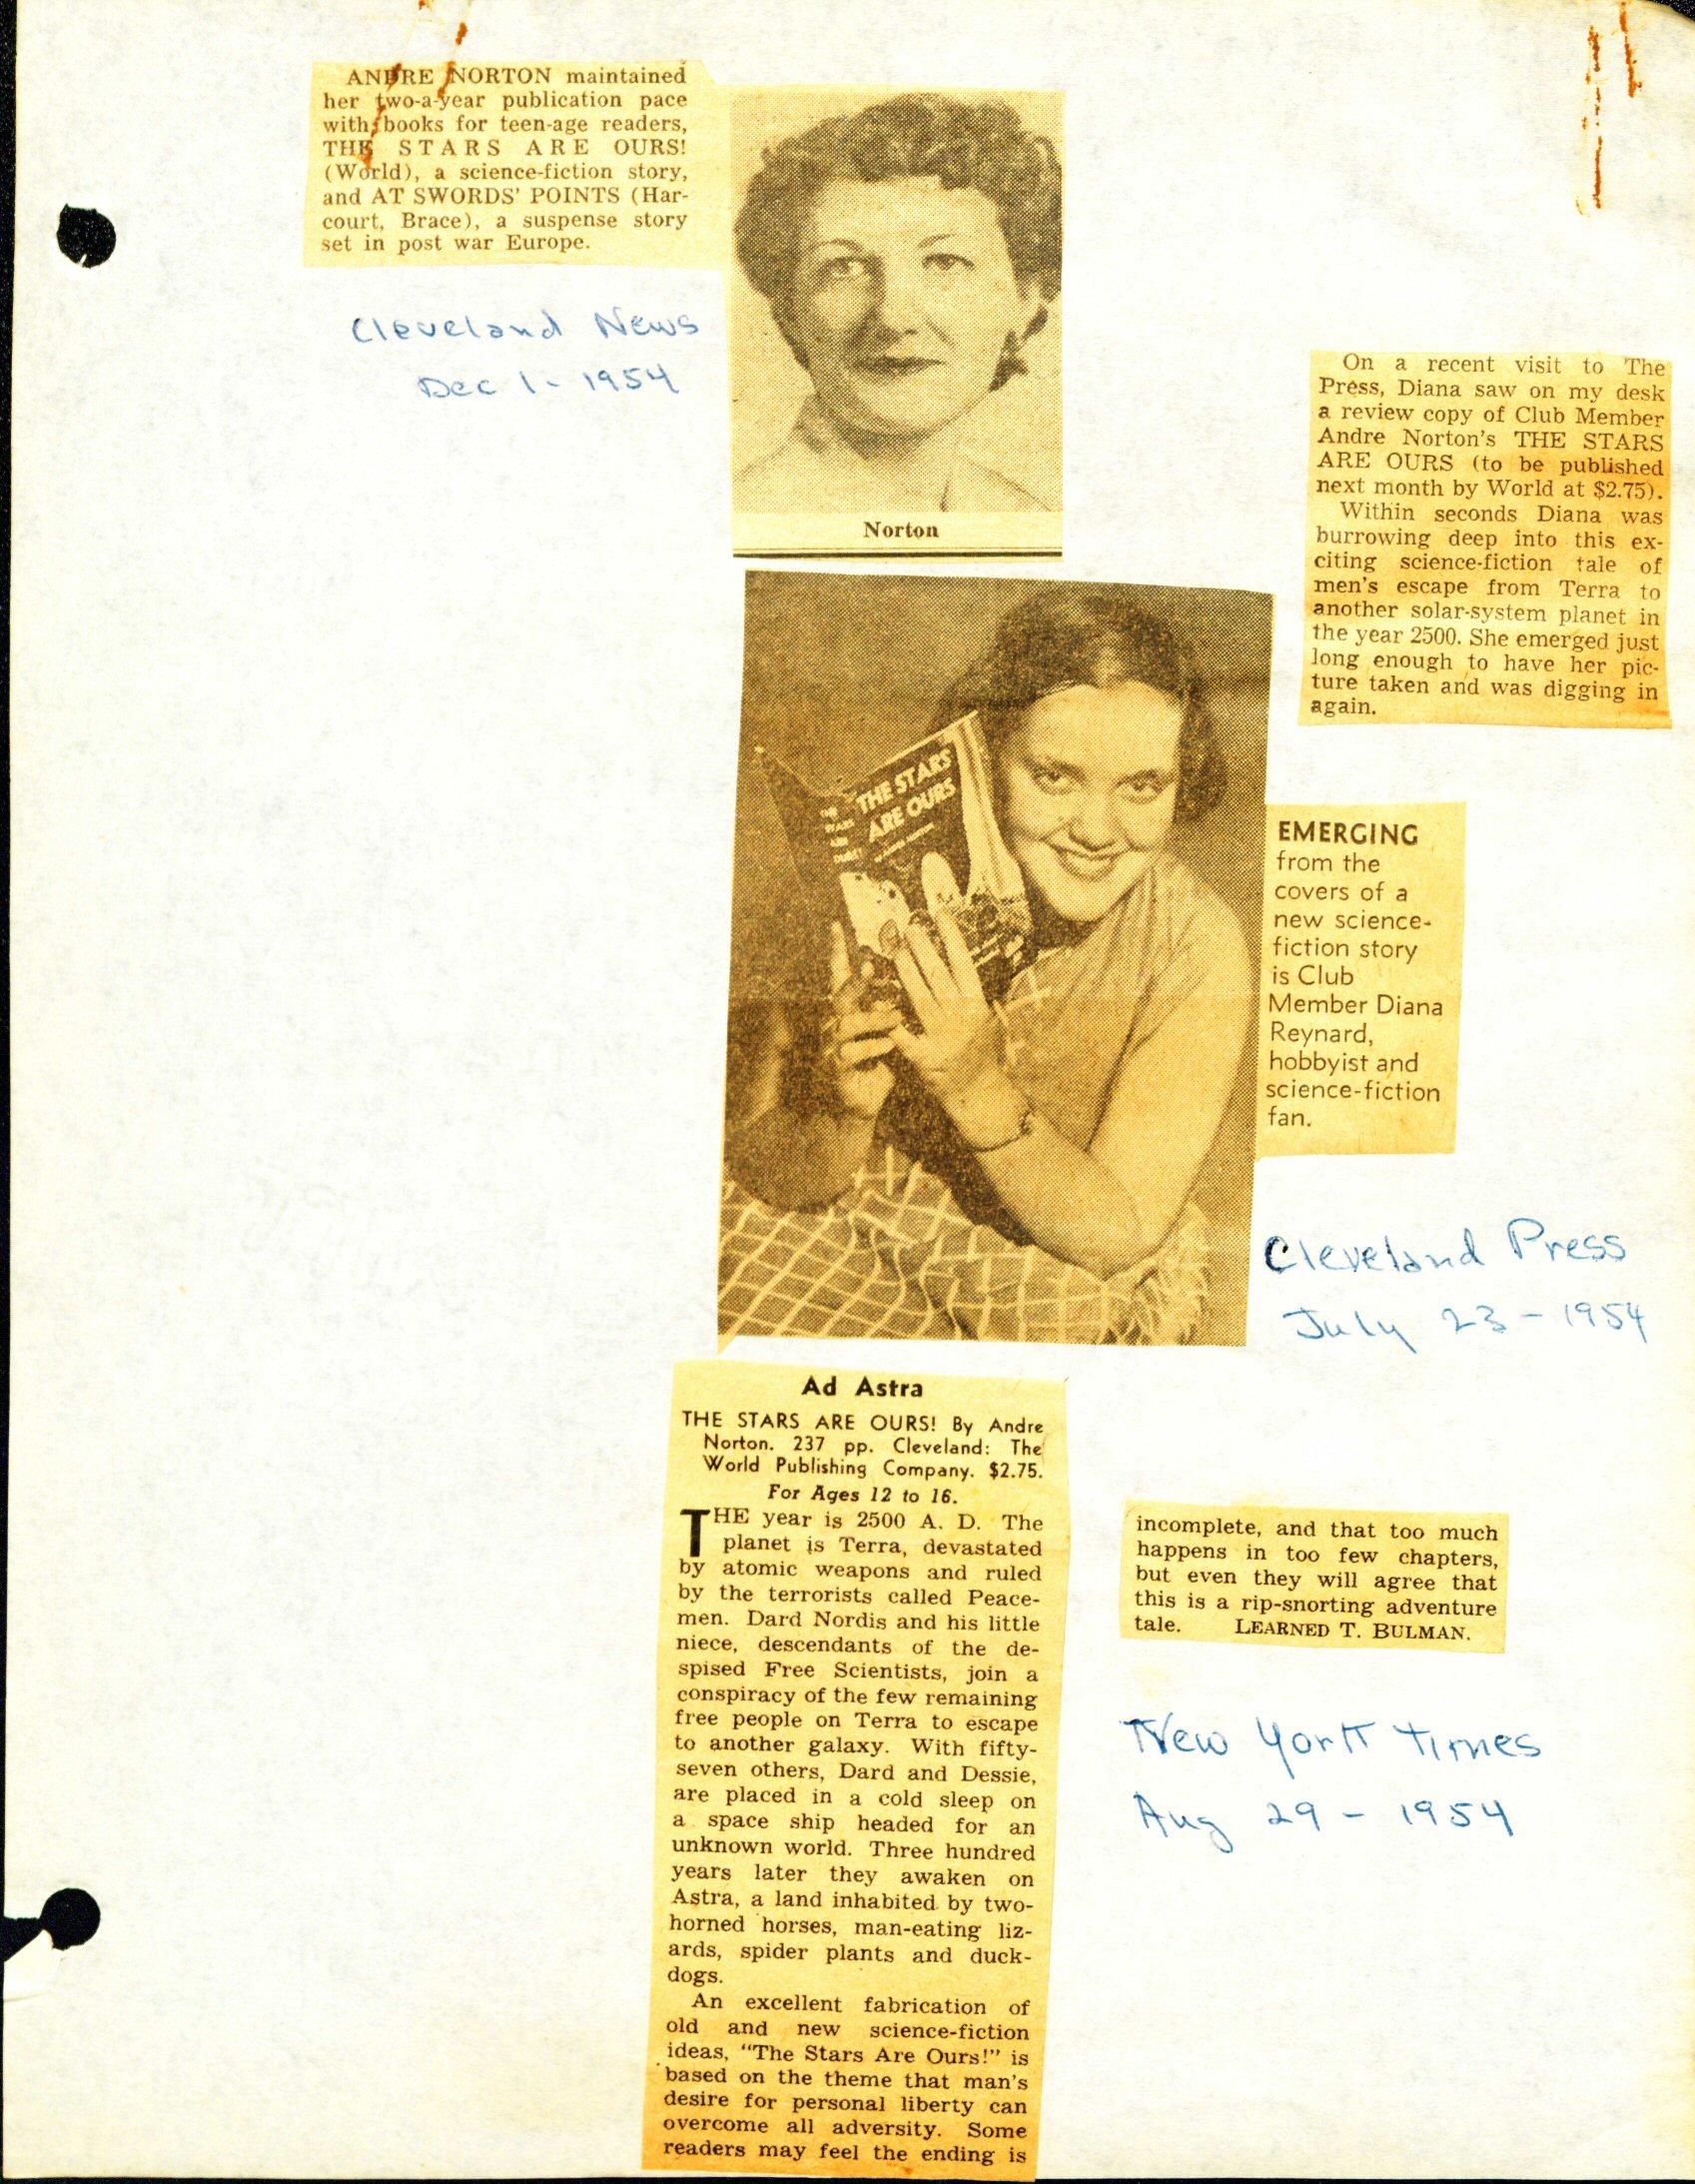 ANDRE NORTON maintained
her two-a-year publication pace
with books for teen-age readers,
THE STARS ARE OURS!
(World), a science-fiction story,
and AT SWORDS' POINTS (Har-
court, Brace), a suspense story
set in post war Europe.
Cleveland News
Dec 1 - 1954
Norton
On a recent visit to The
Press, Diana saw on my desk
a review copy of Club Member
Andre Norton's THE STARS
ARE OURS (to be published
next month by World at $2.75).
Within seconds Diana was
burrowing deep into this ex-
citing science-fiction tale of
men's escape from Terra to
another solar-system planet in
the year 2500. She emerged just
long enough to have her pic-
ture taken and was digging in
again.
THE STARS
ARE OURS
THE
STARS
ARE
OURS!
EMERGING
from the
covers of a
new science-
fiction story
is Club
Member Diana
Reynard,
hobbyist and
science-fiction
fan.
Cleveland Press
July 23 - 1954
Ad Astra
THE STARS ARE OURS! By Andre
Norton. 237 pp. Cleveland: The
World Publishing Company. $2.75.
For Ages 12 to 16.
THE year is 2500 A. D. The
planet is Terra, devastated
by atomic weapons and ruled
by the terrorists called Peace-
men. Dard Nordis and his little
niece, descendants of the de-
spised Free Scientists, join a
conspiracy of the few remaining
free people on Terra to escape
to another galaxy. With fifty-
seven others, Dard and Dessie,
are placed in a cold sleep on
a space ship headed for an
unknown world. Three hundred
years later they awaken on
Astra, a land inhabited by two-
horned horses, man-eating liz-
ards, spider plants and duck-
dogs.
An excellent fabrication of
old and new science-fiction
ideas, "The Stars Are Ours!" is
based on the theme that man's
desire for personal liberty can
overcome all adversity. Some
readers may feel the ending is
incomplete, and that too much
happens in too few chapters,
but even they will agree that
this is a rip-snorting adventure
tale. LEARNED T. BULMAN.
New York Times
Aug 29 - 1954